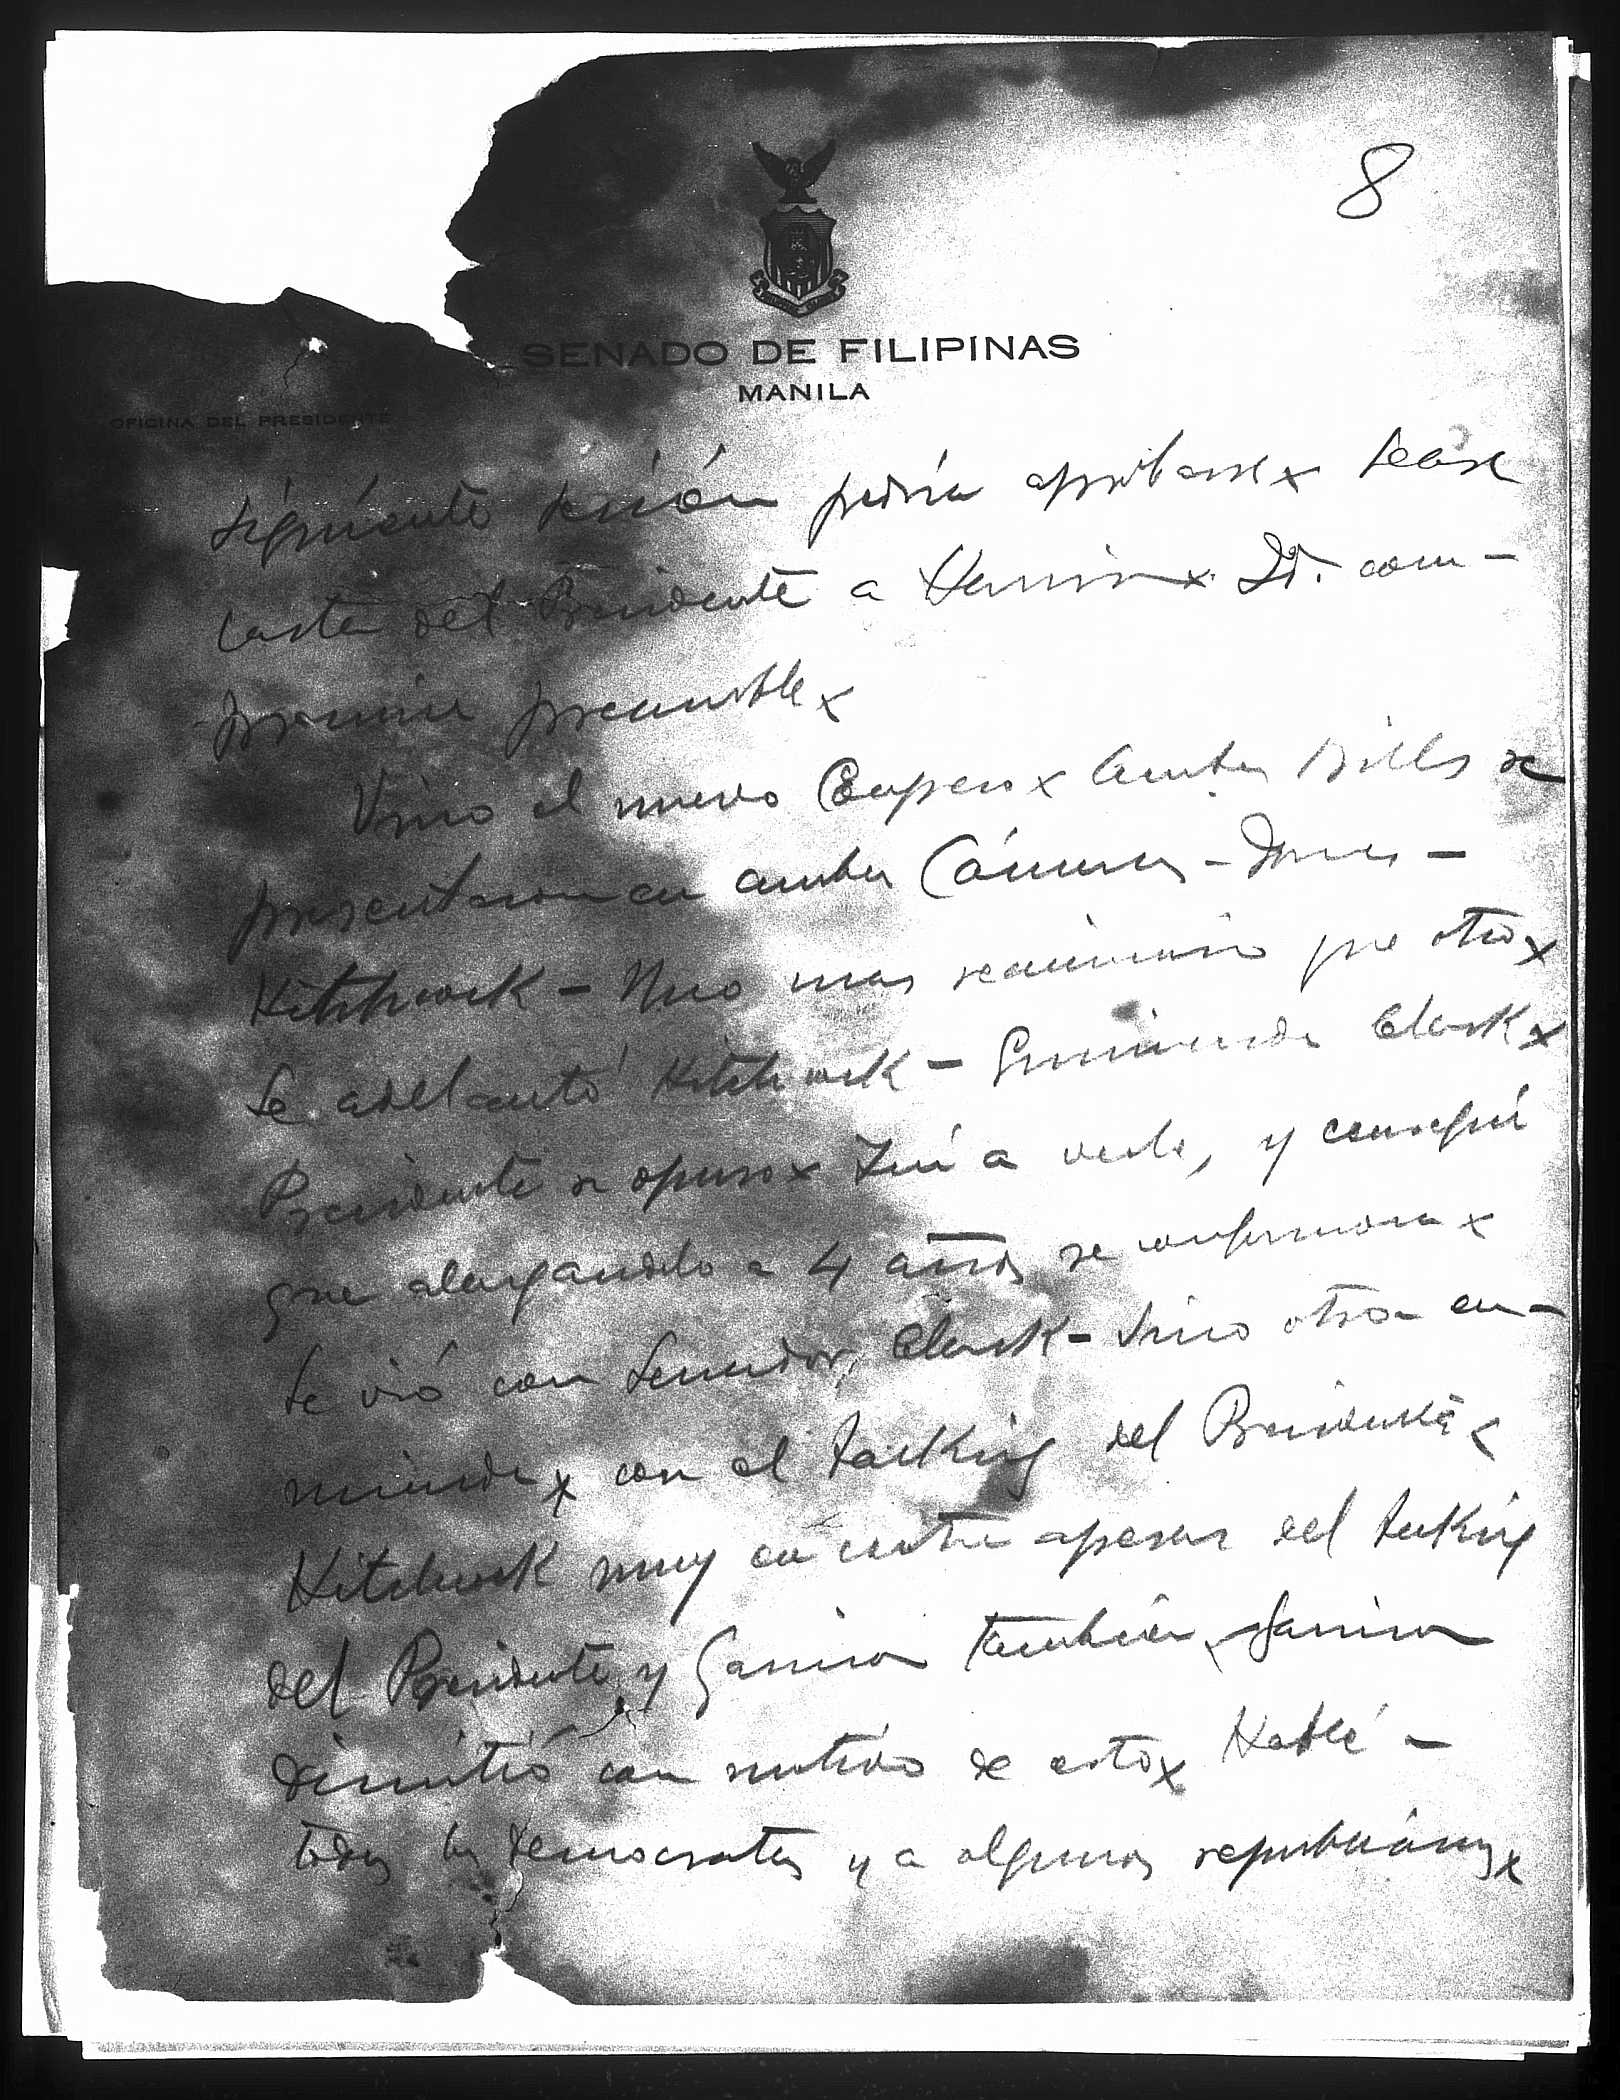 8
SENADO DE FILIPINAS
MANILA
OFICINA DEL PRESIDENTE
siguiente sesión podría aprobarse x Lease
carta del Presidente a Harrison x Id. com-
promise preamble x
Vino el nuevo Congreso x Ambos bills se
presentaron en ambas Cámaras - Jones -
Hitchcock - Uno mas que otro x
Se adelantó Hitchcock - Enmienda Clark x
Presidente se opuso x Fuí a verle, y conseguí
que alargandolo a 4 años se conformara x
Se vió con Senador Clark - Vino otra en-
mienda x con el backing del Presidente x
Hitchcock muy en contra apesar del backing
del Presidente y Garrison también x Garrison
dimitió con motivo de esto x Hablé -
todos los democratas y a algunos republicanos x